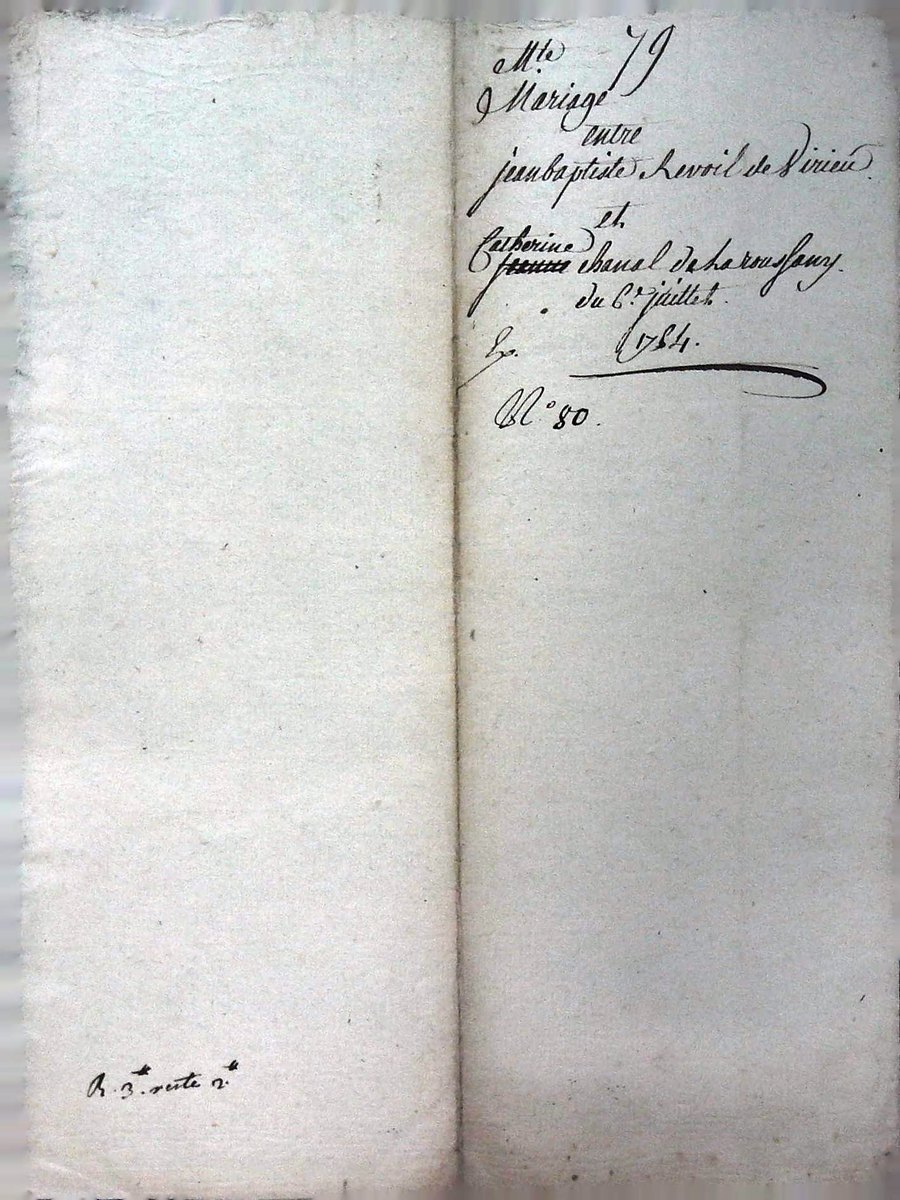 Mte 79
Mariage
entre
jeanbaptiste Revoil de Virieu.
et
Catherine
jeanne chanal de La roussany.
du 6e juillet.
Ex. 1784.
N.º 80.
R. 3# reste 2#